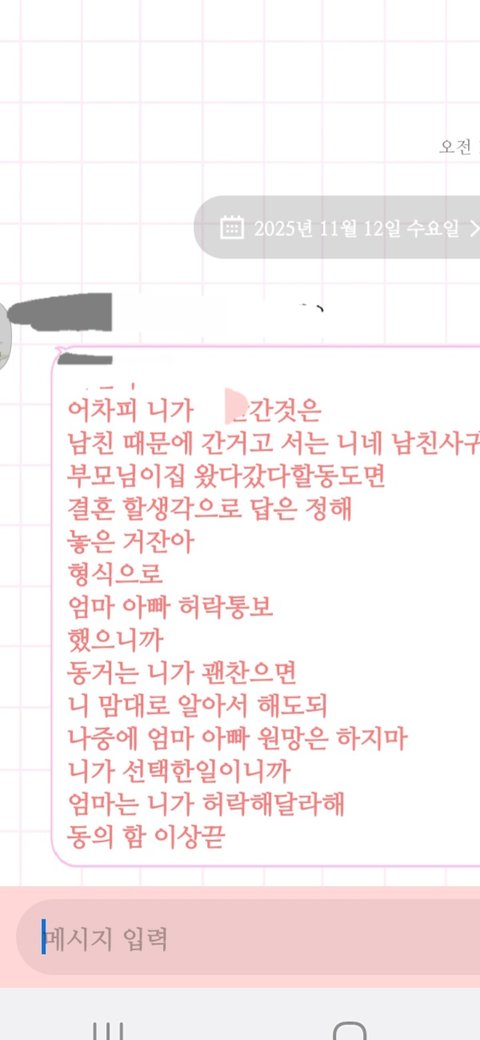 오전
2025년 11월 12일 수요일
어차피 니가 간것은
남친 때문에 간거고 서는 니네 남친사귀
부모님이집 왔다갔다할동도면
결혼 할생각으로 답은 정해
놓은 거잔아
형식으로
엄마 아빠 허락통보
했으니까
동거는 니가 괜찬으면
니 맘대로 알아서 해도되
나중에 엄마 아빠 원망은 하지마
니가 선택한일이니까
엄마는 니가 허락해달라해
동의 함 이상끝
메시지 입력